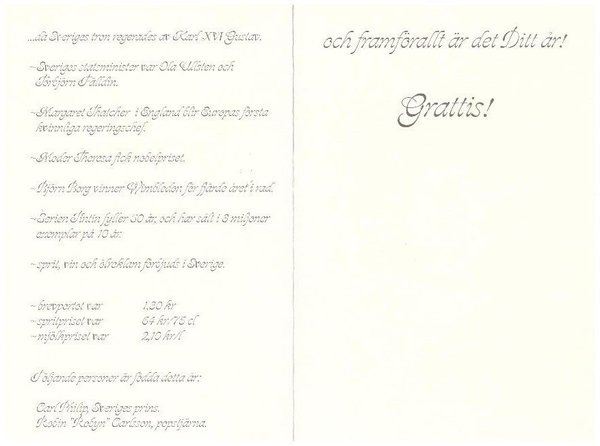 ...då Sveriges tron regerades av Karl XVI Gustav.
~Sveriges statsminister var Ola Ullsten och
Torbjörn Fälldin.
~Margaret Thatcher i England blir Europas första
kvinnliga regeringschef.
~Moder Theresa fick nobelpriset.
~Björn Borg vinner Wimbledon för fjärde året i rad.
~Serien Tintin fyller 50 år, och har sålt i 8 miljoner
exemplar på 10 år.
~sprit, vin och ölreklam förbjuds i Sverige.
~brevportot var 1,30 kr
~spritpriset var 64 kr/75 cl
~mjölkpriset var 2,10 kr/l
Följande personer är födda detta år:
Carl Philip, Sveriges prins.
Robin "Robyn" Carlsson, popstjärna.
och framförallt är det Ditt år!
Grattis!